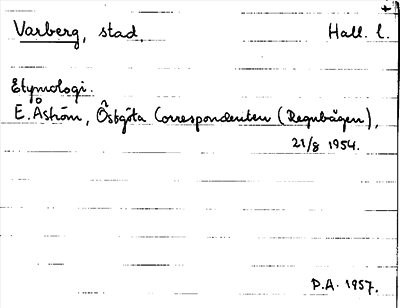 Varberg, stad. Hall. l.
Etymologi.
E. Åström, Östgöta Correspondenten (Regnbågen),
21/8 1954.
P.A. 1957.